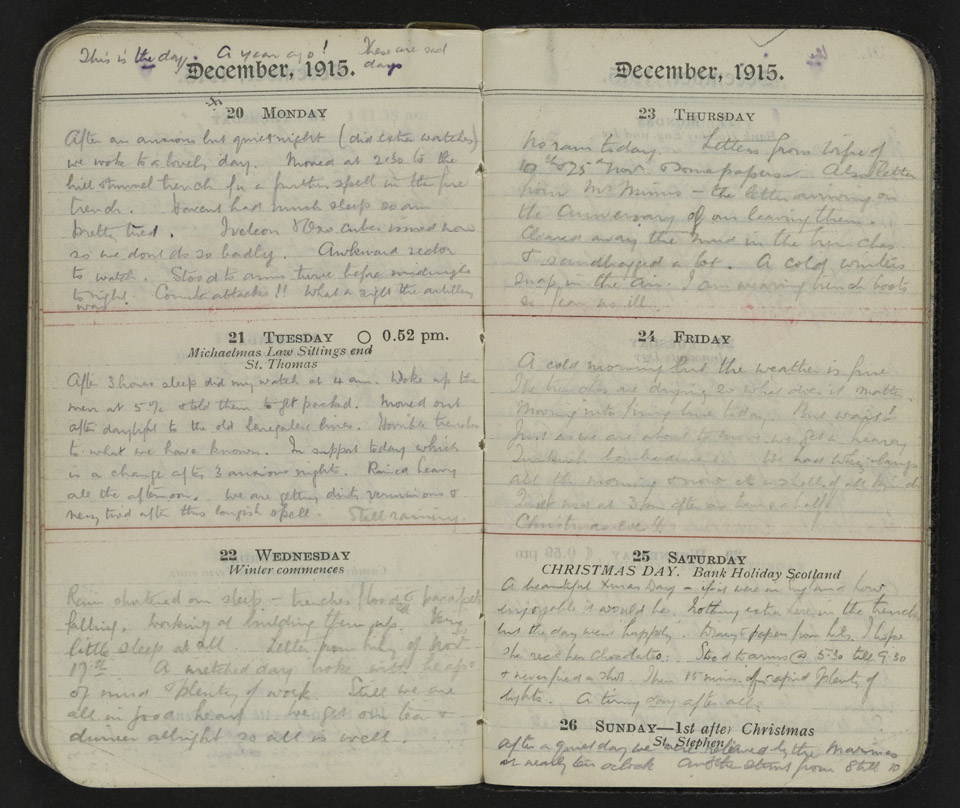 This is the day. A year ago! These are sad
days
December, 1915.
20 MONDAY
After an anxious but quiet night (did extra watches)
we woke to a lovely day. Moved at 2.30 to the
hill & tunnel trench for a further spell in the fire
trench. Havent had much sleep so am
pretty tired. & Oxo cubes issued now
so we dont do so badly. Awkward sector
to watch. Stood to arms twice before midnight
tonight. Comb attacks!! What a sight the artillery
was!
21 TUESDAY ○ 0.52 pm.
Michaelmas Law Sittings end
St. Thomas
After 3 hours sleep did my watch at 4 am. Woke up the
men at 5 & told them to get packed. Moved out
after daylight to the old lines. Horrible trenches
to what we have known. In support today which
is a change after 3 anxious nights. Rained heavy
all the afternoon. We are getting dirty verminous &
very tired after this longish spell. Still raining.
22 WEDNESDAY
Winter commences
Rain shortened our sleep – trenches flooded & parapet
falling. Working at building them up. Very
little sleep at all. Letter from hily of Nov
17th A wretched day with heaps
of mud & plenty of work. Still we are
all in good heart we get our tea &
dinner allright so all is well.
December, 1915.
23 THURSDAY
No rain today. Letters from wife of
10th & 25th Nov. & some papers. Also letter
from Mr – the letter arriving on
the Anniversary of our leaving them.
Cleared away the mud in the trenches
& sandbagged a lot. A cold winters
snap in the air. I am wearing trench boots
so fear no ill.
24 FRIDAY
A cold morning but the weather is fine
The trenches are drying so what does it matter.
Moving into firing line today. But wait!
Just as we are about to move we get a heavy
Turkish bombardment. We had whizz-bangs
all the morning & now its shells of all kinds
Quick move at 3 pm after an hour & a half
Christmas Eve!!
25 SATURDAY
CHRISTMAS DAY. Bank Holiday Scotland
A beautiful Xmas Day – if it were in England how
enjoyable it would be. Nothing extra here in the trench
but the day went happily. Diary & paper from hily. I hope
she recd her chocolates. Stood to arms @ 5.30 till 9.30
& never fired a shot. Then 15 mins. of rapid & plenty of
lights. A tiring day after all.
26 SUNDAY—1st after Christmas
St. Stephen
After a quiet day we were relieved by the Marines
at nearly ten oclock from 8 till 10